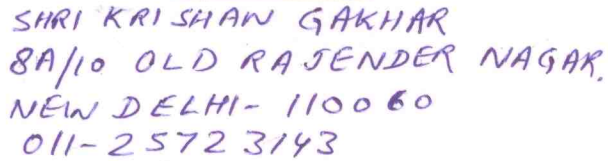 SHRI KRISHAN GAKHAR
8A/10 OLD RAJENDER NAGAR.
NEW DELHI- 110060
011-25723143